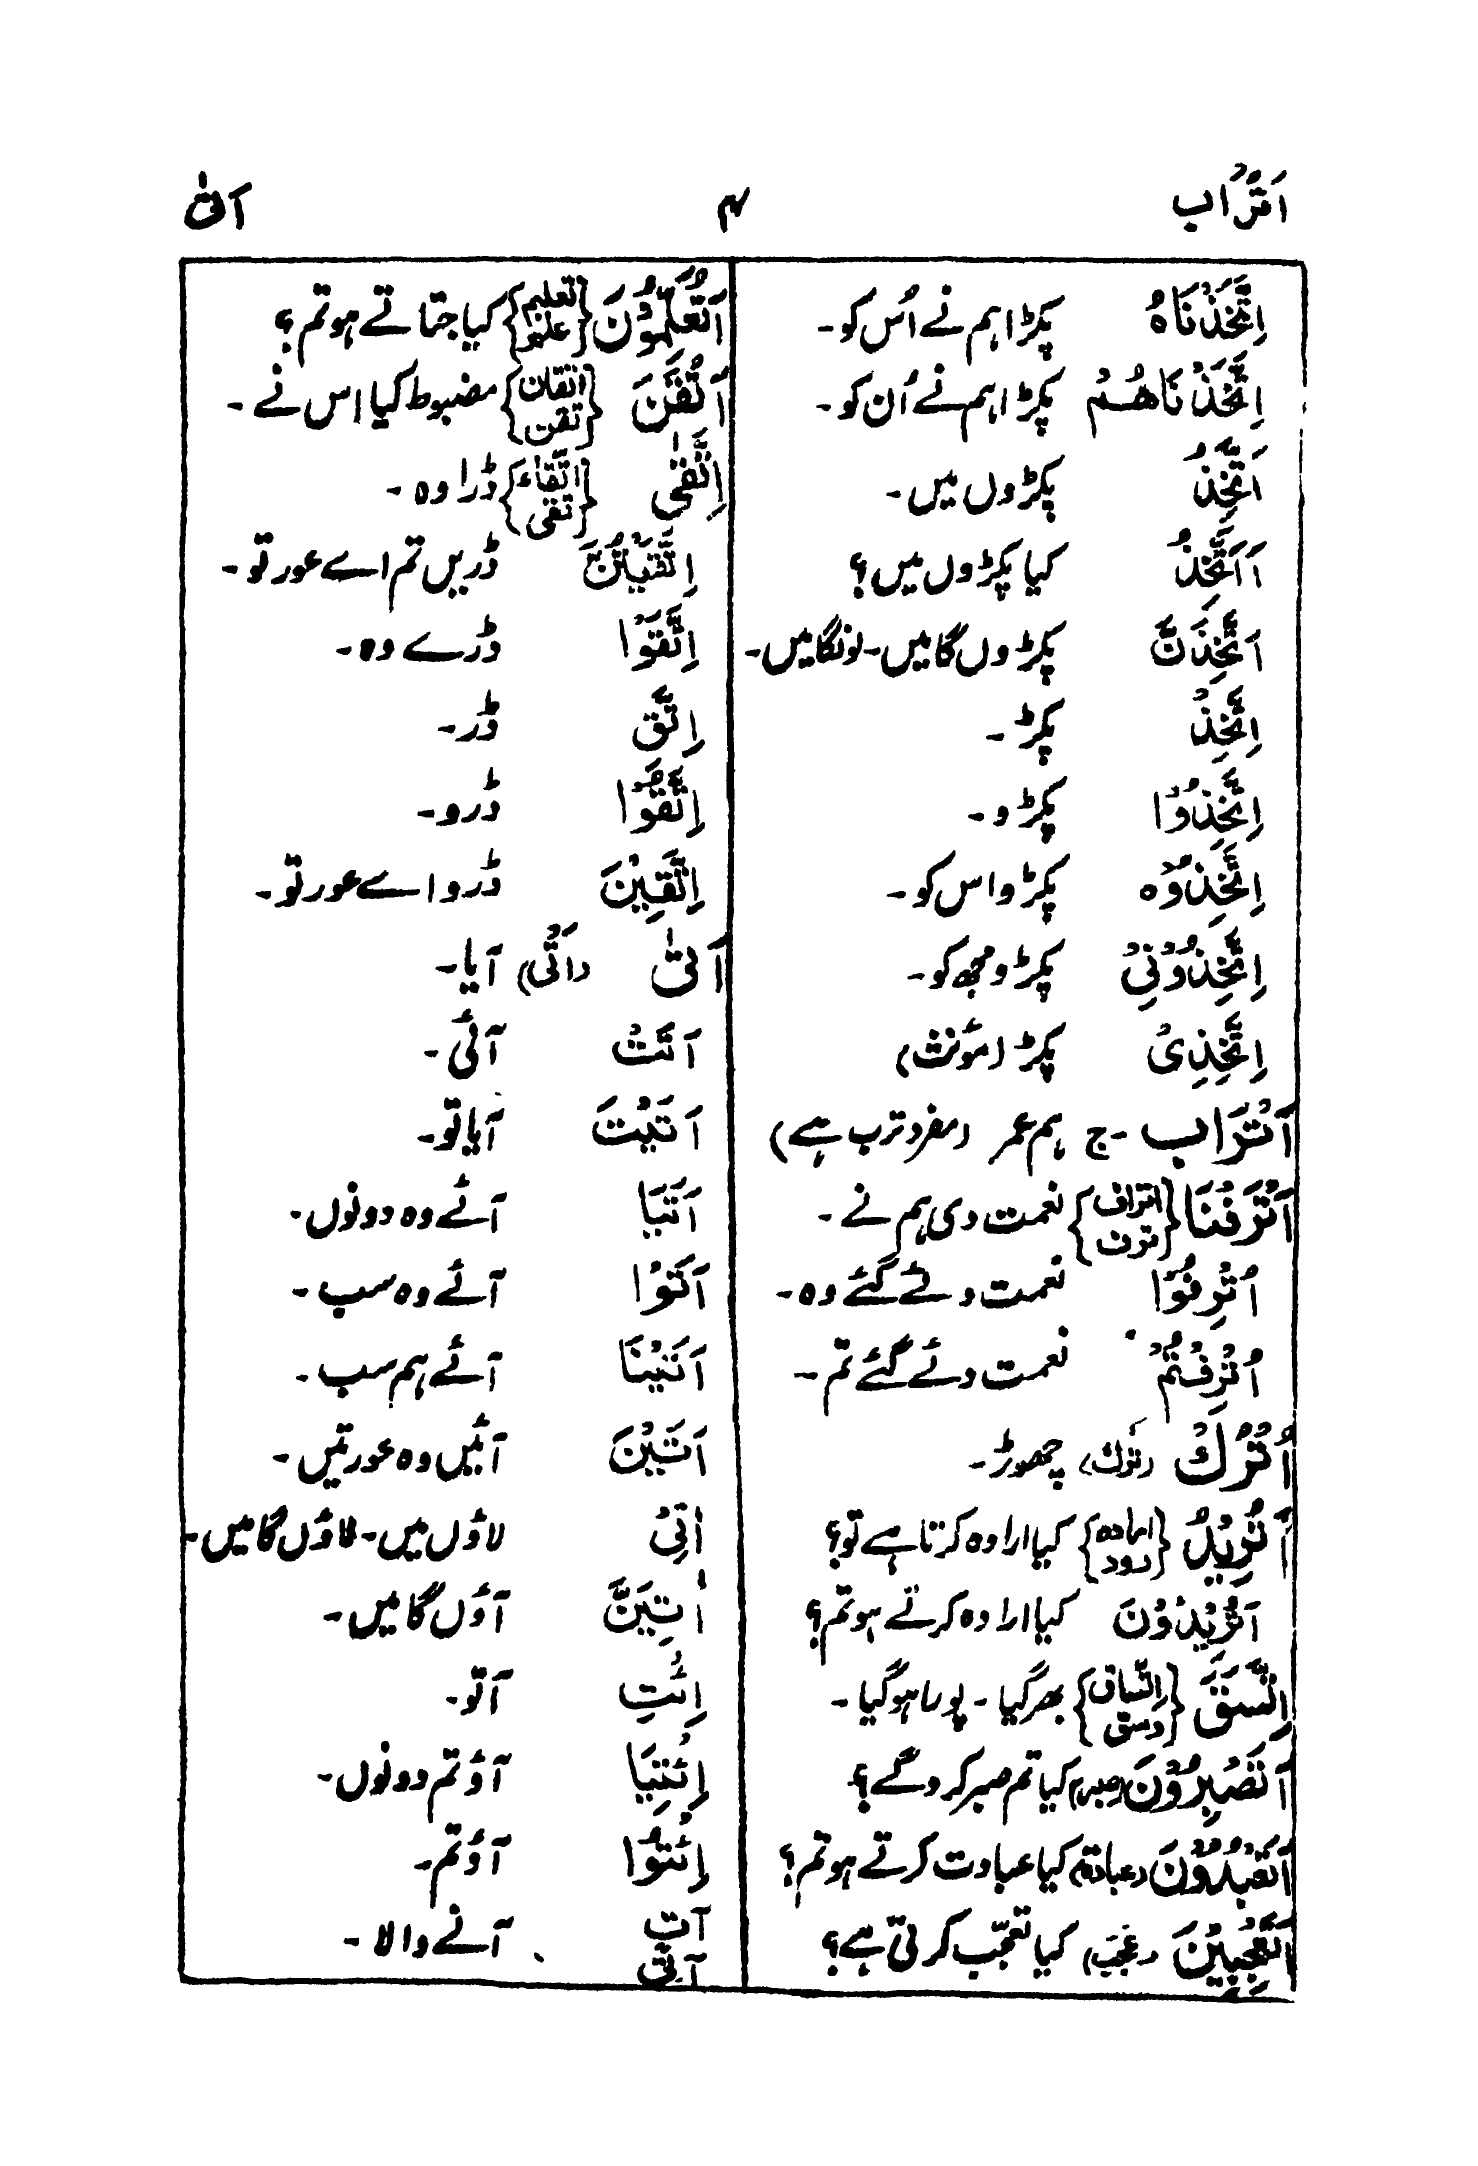 اَتْرَاب ۴ اَتٰی
اِتَّخَذْنَاہُ پکڑا ہم نے اُس کو۔
اِتَّخَذْنَاھُمْ پکڑا ہم نے اُن کو۔
اَتَّخِذُ پکڑوں میں۔
اَاَتَّخِذُ کیا پکڑوں میں؟
اَتَّخِذَنَّ پکڑوں گا میں۔ لونگا میں۔
اِتَّخِذْ پکڑ۔
اِتَّخِذُوْا پکڑو۔
اِتَّخِذُوْہ پکڑو اس کو۔
اِتَّخِذُوْنِیْ پکڑو مجھ کو۔
اِتَّخِذِیْ پکڑ (مؤنث)
اَتْرَاب۔ ج ہم عمر (مفرد ترب ہے)
اَتْرَفْنَا {اتراف ترف} نعمت دی ہم نے۔
اُتْرِفُوْا نعمت دئے گئے وہ۔
اُتْرِفْتُمْ نعمت دئے گئے تم۔
اُتْرُكْ (تَرْك) چھوڑ۔
اَتُرِیْدُ {ارادہ رود} کیا ارادہ کرتا ہے تو؟
اَتُرِیْدُوْنَ کیا ارادہ کرتے ہو تم؟
اِتَّسَقَ {اِتِّساق وسق} بھر گیا۔ پورا ہو گیا۔
اَتَصْبِرُوْنَ (صبر) کیا تم صبر کروگے؟
اَتَعْبُدُوْنَ (عبادۃ) کیا عبادت کرتے ہو تم؟
اَتَعْجَبِیْنَ (عَجَب) کیا تعجّب کرتی ہے؟
اَتُعَلِّمُوْنَ {تعلیم علم} کیا جتاتے ہو تم؟
اَتْقَنَ {اتقان تقن} مضبوط کیا اس نے۔
اِتَّقٰی {اتّقاء تقی} ڈرا وہ۔
اِتَّقَیْتُنَّ ڈریں تم اے عورتو۔
اِتَّقَوْا ڈرے وہ۔
اِتَّقِ ڈر۔
اِتَّقُوْا ڈرو۔
اِتَّقِیْنَ ڈرو اے عورتو۔
اَتٰی (اَتْی) آیا۔
اَتَتْ آئی۔
اَتَیْتَ آیا تو۔
اَتَیَا آئے وہ دونوں۔
اَتَوْا آئے وہ سب۔
اَتَیْنَا آئے ہم سب۔
اَتَیْنَ آئیں وہ عورتیں۔
اٰتِیْ لاؤں میں۔ لاؤں گا میں۔
اٰتِیَنَّ آؤں گا میں۔
اِئْتِ آ تو۔
اِئْتِیَا آؤ تم دونوں۔
اِئْتُوْا آؤ تم۔
آتٍ آنے والا۔
آتِیْ